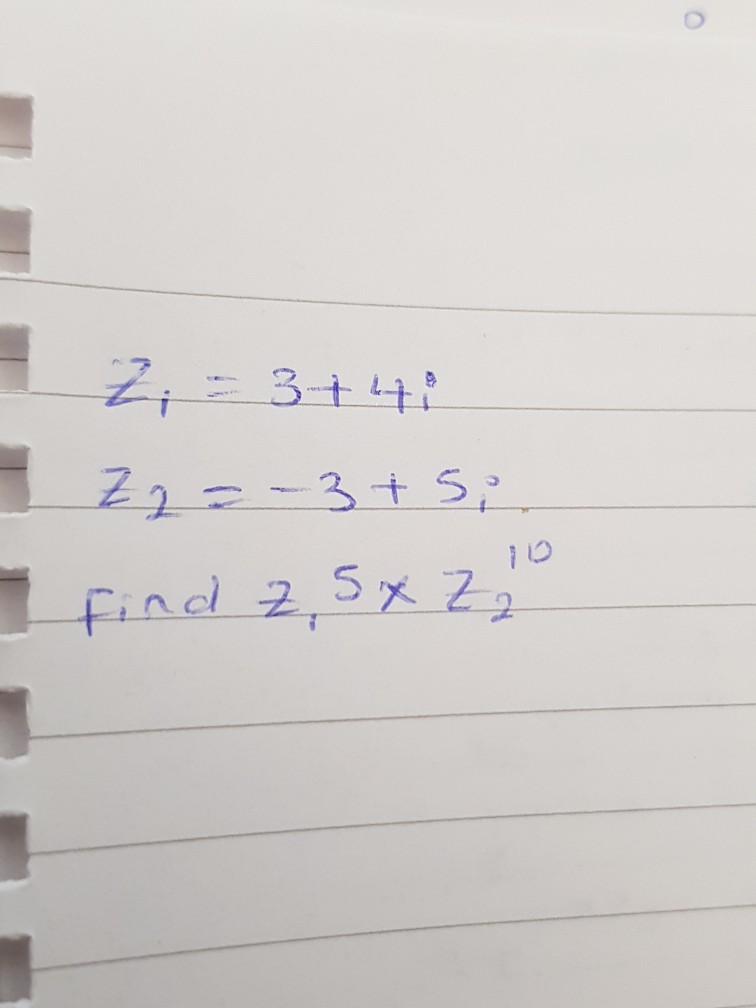 Z₁ = 3+4i
Z₂ = -3 + 5i
Find Z₁⁵ x Z₂¹⁰